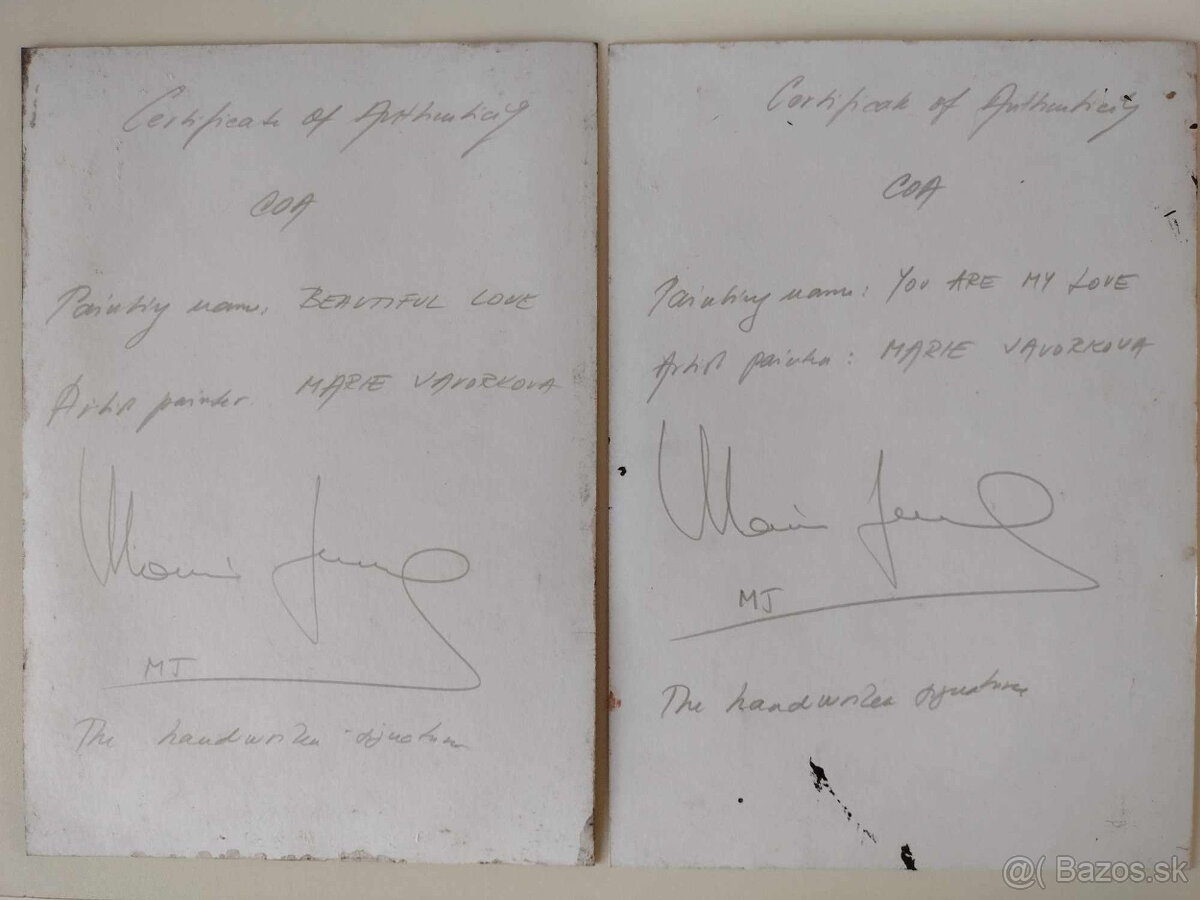 Certificate of Authenticity
COA
Painting name: BEAUTIFUL LOVE
Artist painter: MARIE VAVORKOVA
MJ
The handwriten signature
Certificate of Authenticity
COA
Painting name: YOU ARE MY LOVE
Artist painter: MARIE VAVORKOVA
MJ
The handwriten signature
@( Bazos.sk